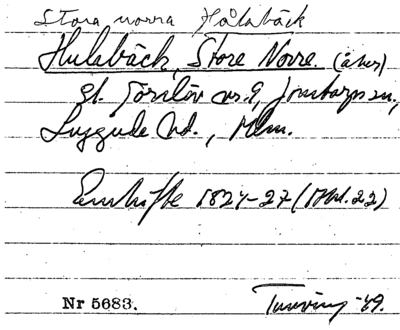 Stora norra Hålabäck
Hulabäck, Store Norre. (åker)
st. Törslöv nr. 9, Jonstorps sn.,
Luggude hd., Mlm.
Enskifte 1824-27 (Akt. 22)
Nr 5683. Tuneving -69.